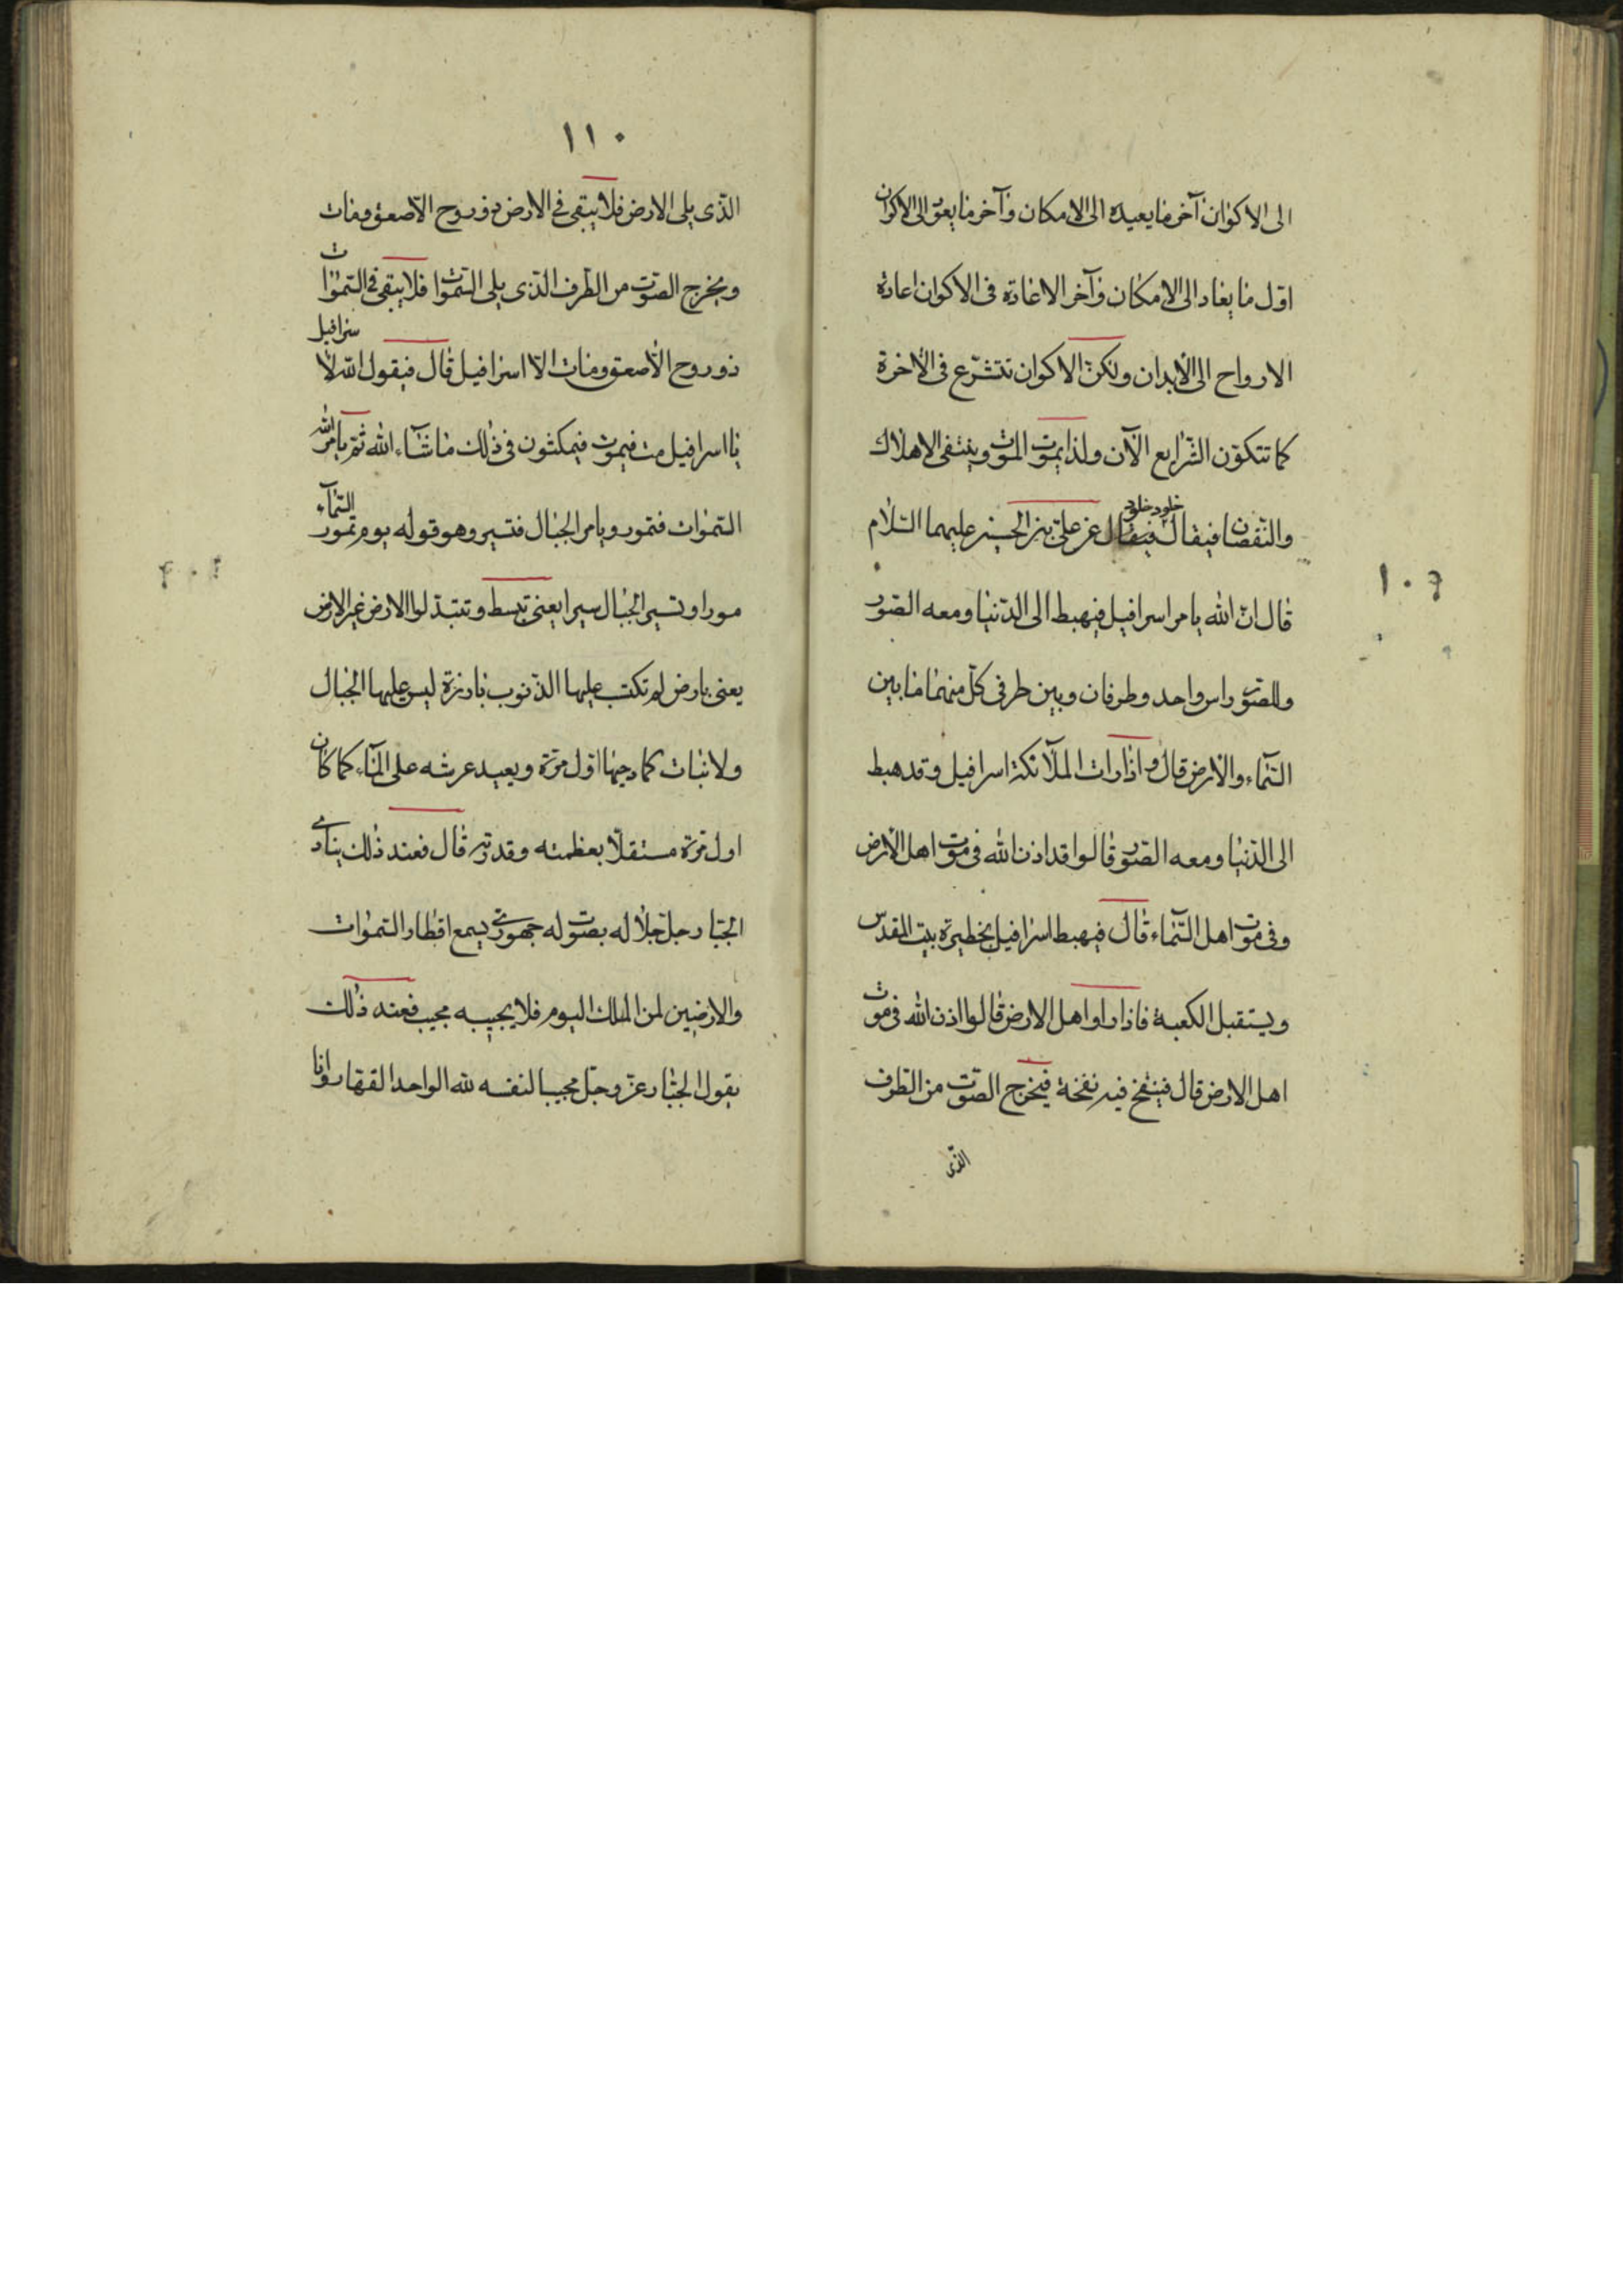 الى الاكوان آخر ما يعيده الى الامكان وآخر ما يعود الى الاكوان
اوّل ما يعاد الى الامكان وآخر الاعادة فى الاكوان اعادة
الارواح الى الابدان ولكنّ الاكوان تتشرّع فى الاخرة
كما تتكوّن الشرايع الآن ولذا يموت الموت وينتفى الاهلاك
والنّقصان فيقال خلود خلود فيقال عن علىّ بن الحسين عليهما السّلام
قال انّ الله يامر اسرافيل فيهبط الى الدّنيا ومعه الصّور
وللصّور راس واحد وطرفان وبين طرفى كلّ منهما ما بين
السّماء والارض قال واذا رات الملآئكة اسرافيل وقد هبط
الى الدّنيا ومعه الصّور قالوا قد اذن الله فى موت اهل الارض
وفى موت اهل السّمآء قال فيهبط اسرافيل بحظيرة بيت المقدس
ويستقبل الكعبة فاذا راوا اهل الارض قالوا اذن الله فى موت
اهل الارض قال فينفخ فيه نفخة فيخرج الصّوت من الطّرف
الذى
١١٠
الّذى يلى الارض فلا يبقى فى الارض ذو روح الّا صعق ومات
ويخرج الصّوت من الطّرف الّذى يلى السّموات فلا يبقى فى السّموات
ذو روح الّا صعق ومات الّا اسرافيل قال فيقول الله لاسرافيل
يا اسرافيل مت فيموت فيمكثون فى ذلك ما شآء الله ثمّ يامر الله
السّموات فتمور ويامر الجبال فتسير وهو قوله يوم تمور السّمآء
مورا وتسير الجبال سيرا يعنى تبسط وتتبدّلوا الارض غير الارض
يعنى بارض لم تكتب عليها الذّنوب بارزة ليس عليها الجبال
ولا نبات كما دحيها اوّل مرّة ويعيد عرشه على المآء كما كان
اول مرّة مستقلّا بعظمته وقدرته قال فعند ذلك ينادى
الجبّار جلّ جلاله بصوت له جهورى يسمع اقطار السّموات
والارضين لمن الملك اليوم فلا يجيبه مجيب فعند ذلك
يقول الجبّار عزّ وجلّ مجيبا لنفسه لله الواحد القهار وانا